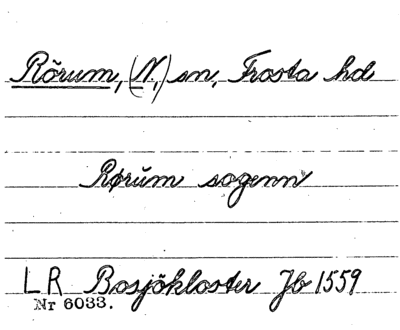 Rörum, (N.) sn, Frosta hd
Rørŭm sogenn
LR Bosjökloster Jb 1559
Nr 6033.